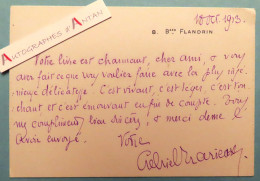 AUTOGRAPHES d'ANTAN
8. Bd FLANDRIN
18 Oct. 1913.
Votre livre est charmant, cher ami, & vous
avez fait ce que vous vouliez faire avec la plus
délicatesse. C'est vivant, c'est léger, c'est
chant et c'est émouvant en fin de compte. Tous
mes compliments bien sincères, & merci de me l'
avoir envoyé.
Votre
Gabriel